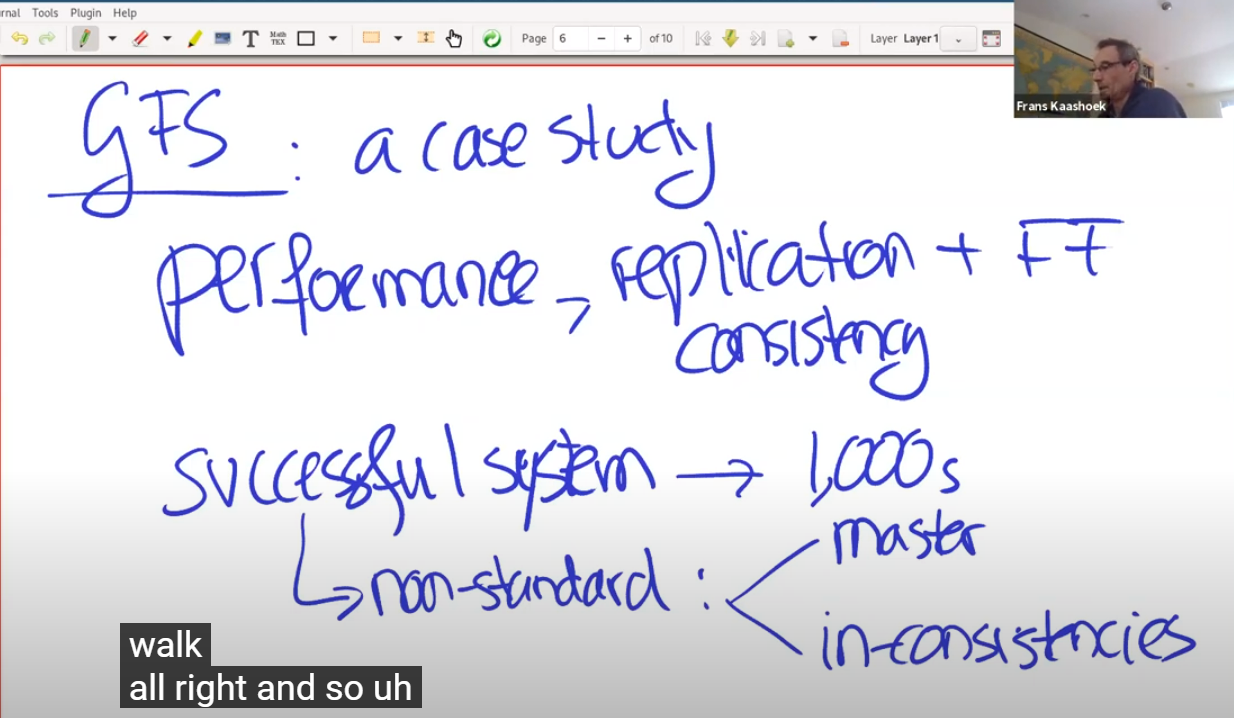 rnal Tools Plugin Help
T Math TEX Page 6 − + of 10 Layer Layer 1
Frans Kaashoek
GFS : a case study
performance, replication + FT
consistency
successful system → 1,000s
↳ non-standard : < master
in-consistencies
walk
all right and so uh